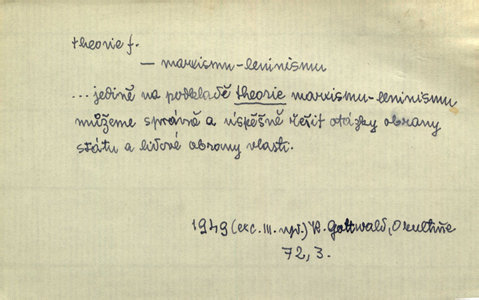 theorie f.
— marxismu-leninismu
...jedině na podkladě theorie marxismu-leninismu
můžeme správně a úspěšně řešit otázky obrany
státu a lidové obrany vlasti.
1949 (exc. III. vyd.) K. Gottwald, O kultuře
72, 3.